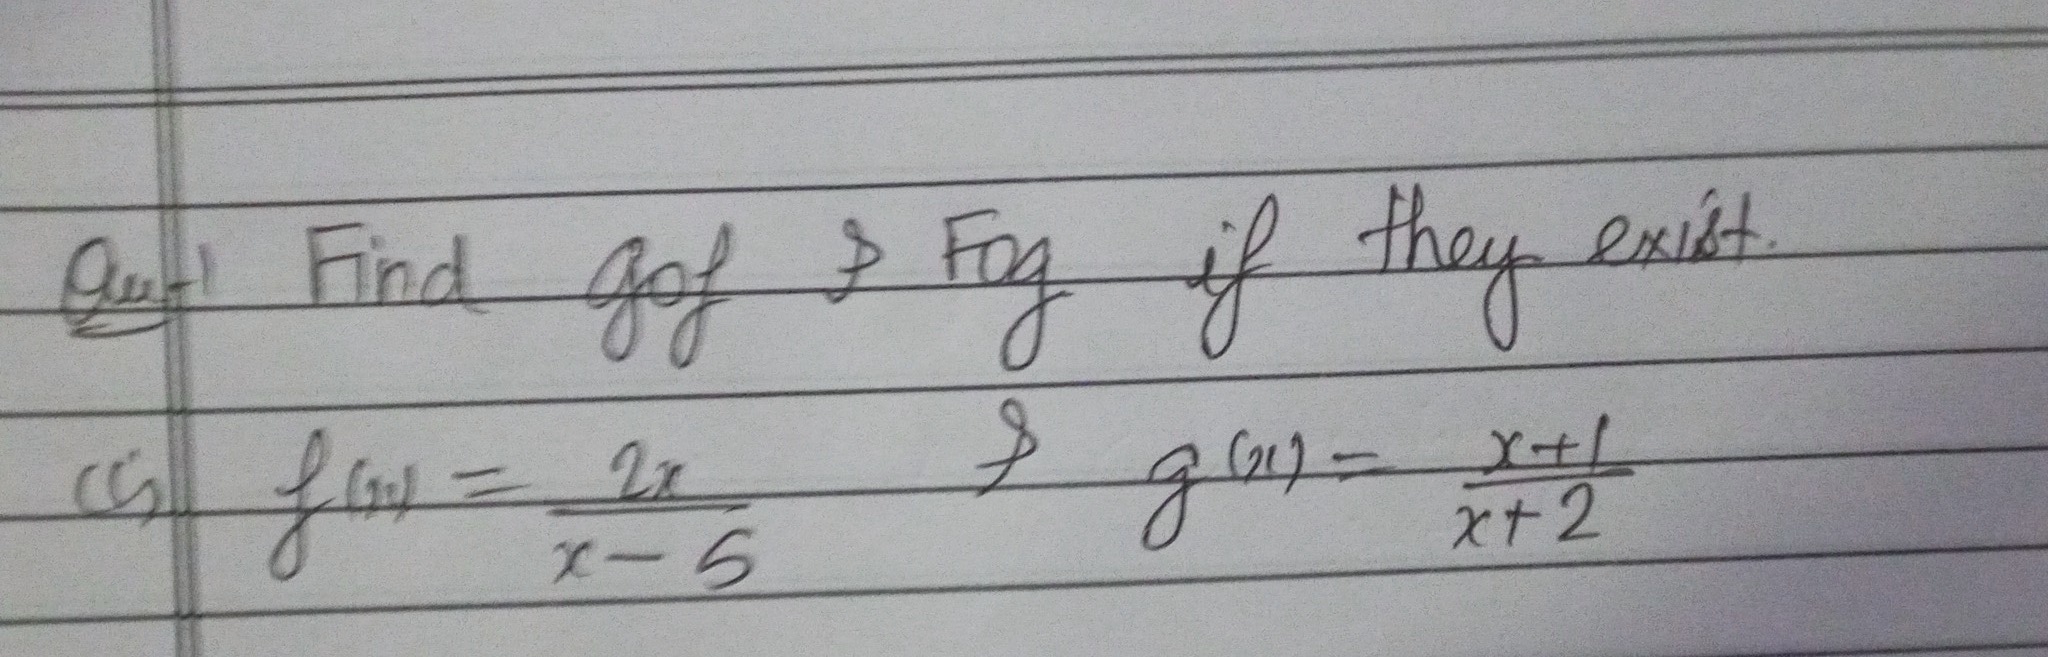 Que-1 Find gof & Fog if they exist.
(i) f(x) = 2x / x - 5 & g(x) = x+1 / x+2